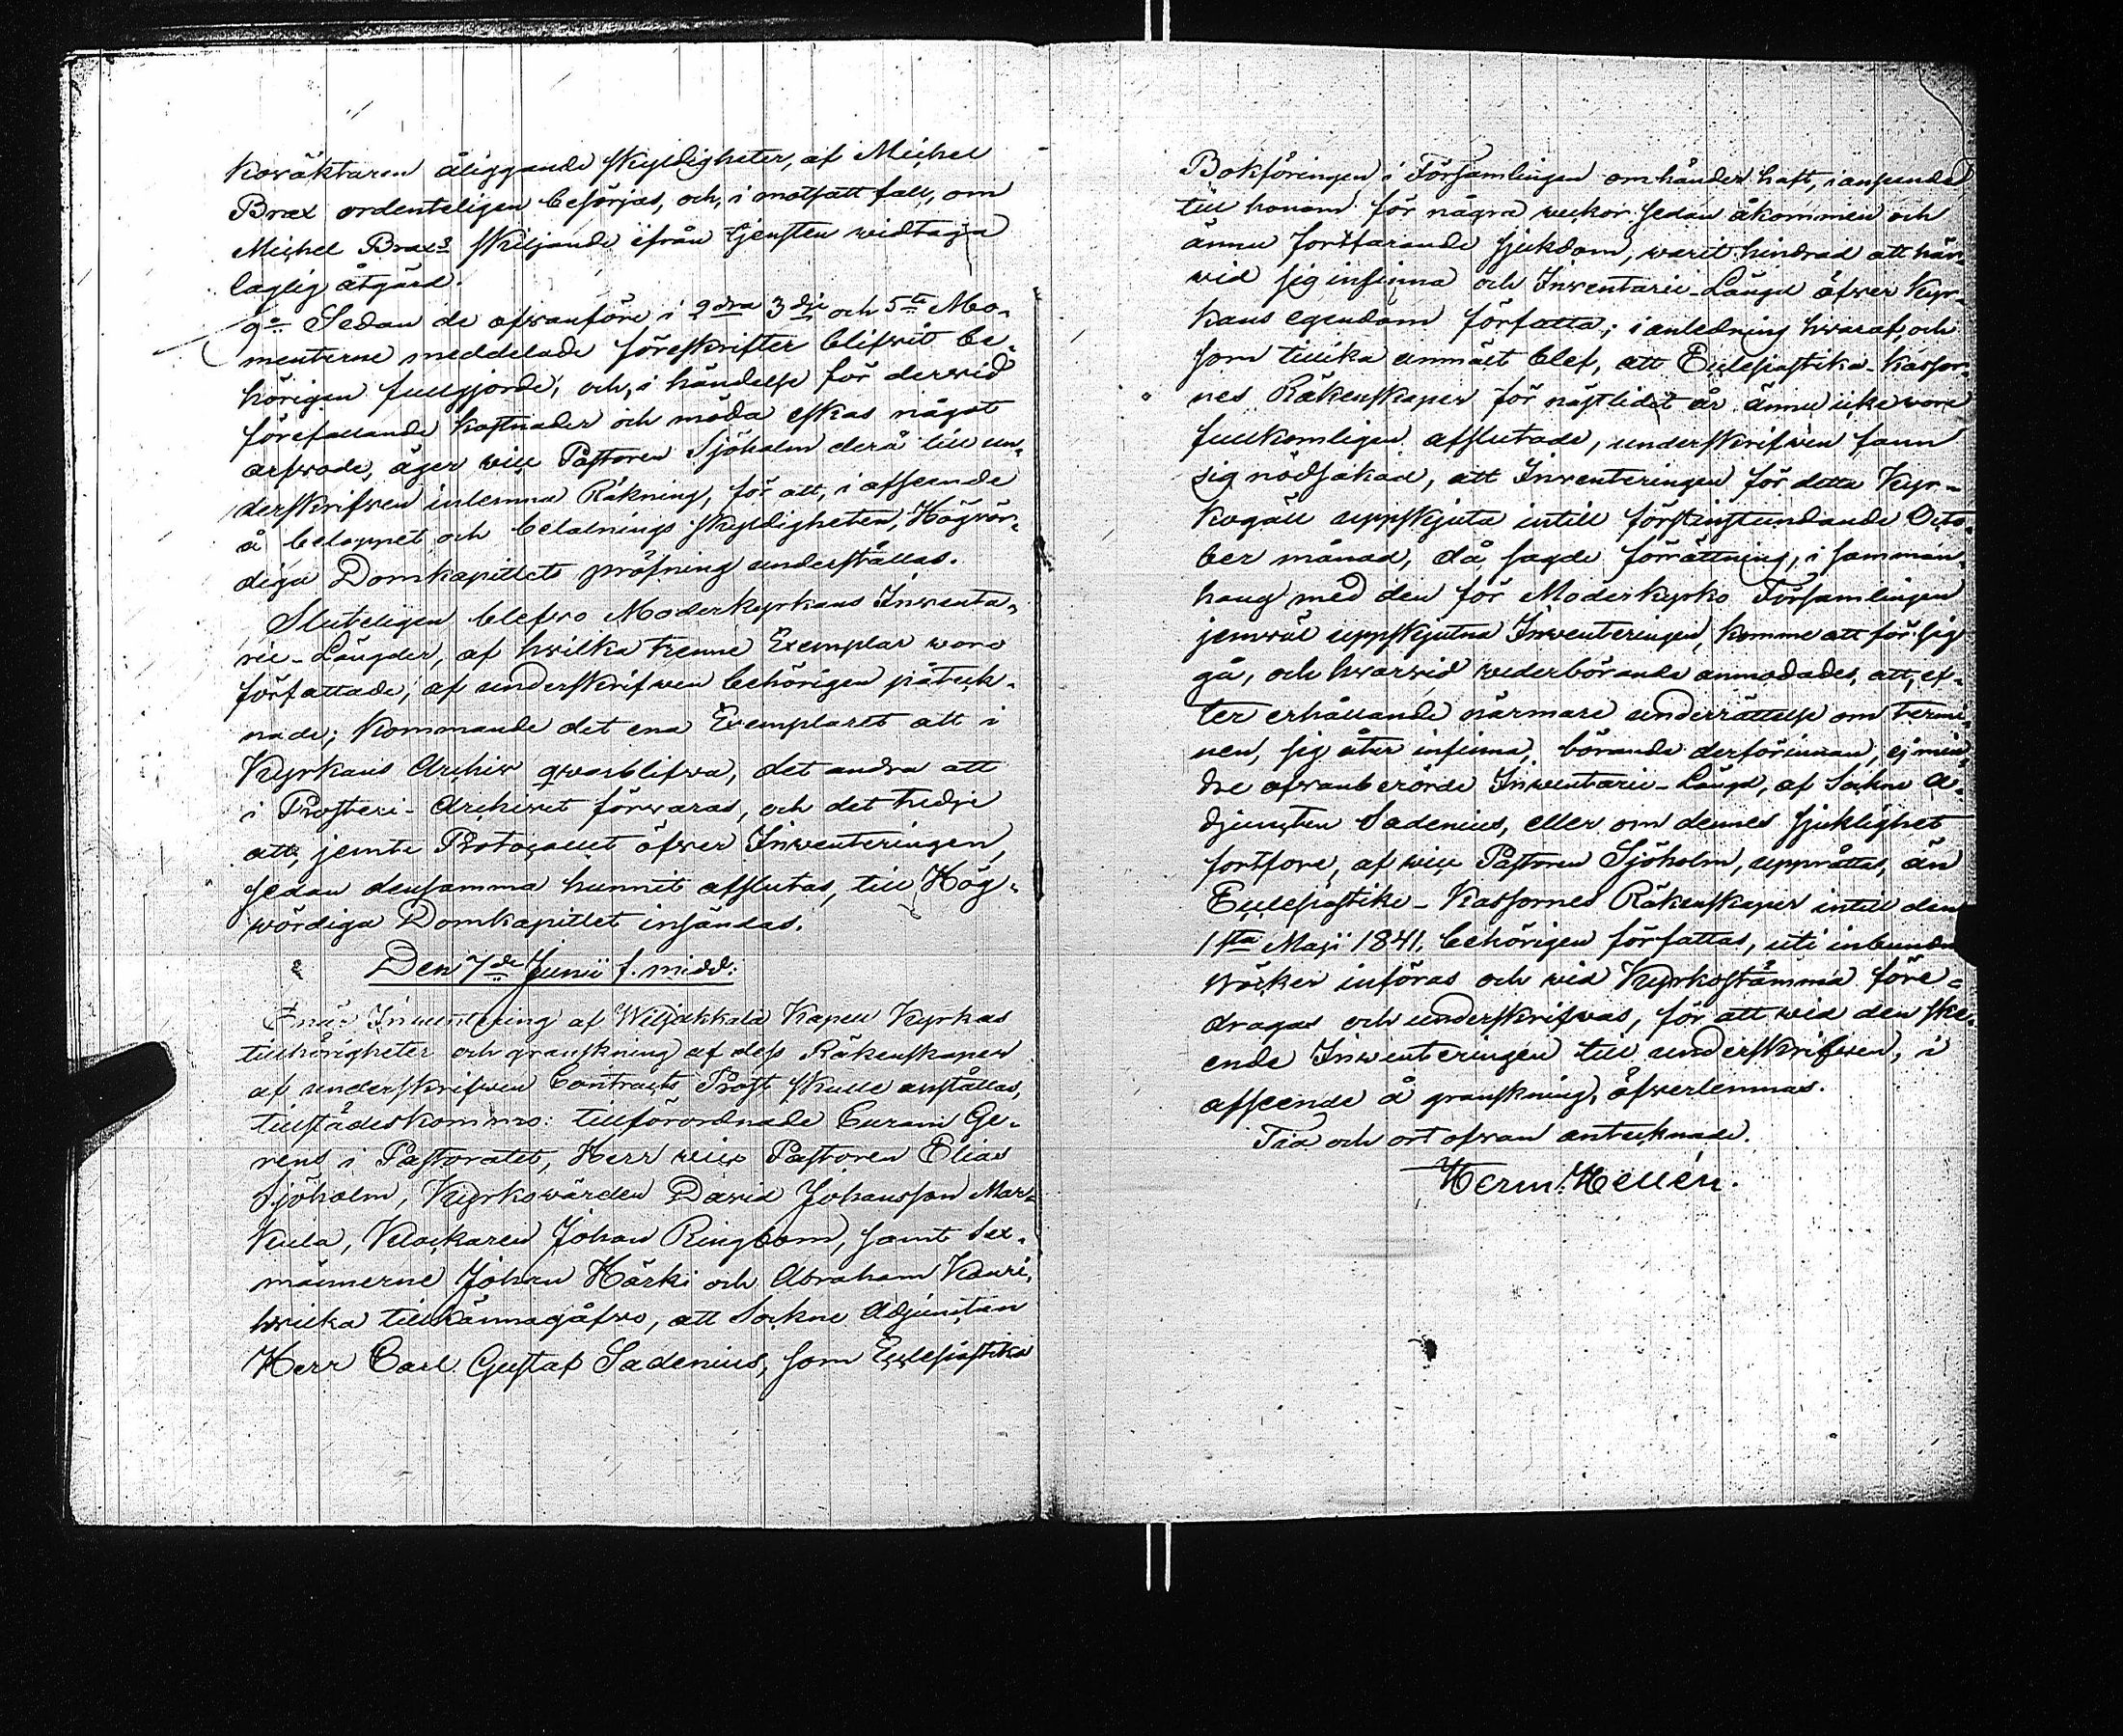 Koväktaren åliggande skyldigheter, af Michel
Brax ordenteligen besörjas, och, i motsatt fall, om
Michel Brax's skiljande ifrån tjensten widtaga
laglig åtgärd.
9o Sedan de ofwanföre i 2dra 3dje och 5te Mo-
menterne meddelade föreskrifter blifwit be-
hörigen fullgjorde; och, i händelse för derwid
förefallande kostnader och möda äskas något
arfwode, äger wice Pastoren Sjöholm derå till un-
derskrifwen inlemna Räkning, för att, i afseende
å beloppet och betalnings skyldigheten, Högwör-
diga Domkapitlets pröfning underställas.
Sluteligen blefwo Moderkyrkans Inwenta-
rie-Längder, af hwilka trenne Exemplar woro
författade, af underskrifwen behörigen påteck-
nade; kommande det ena Exemplaret att i
Kyrkans Archiv qwarblifwa, det andra att
i Prosteri-Archivet förwaras, och det tredje
att, jemte Protocollet öfwer Inwenteringen,
sedan densamma hunnit afslutas, till Hög-
wördiga Domkapitlet insändas.
Den 7de Junii f. midd:
Enär Inwentering af Wiljakkala Kapell Kyrkas
tillhörigheter och granskning af dess Räkenskaper
af underskrifwen Contracts Prost skulle anställas,
tillstädeskommo: tillförordnade Curam Ge-
rens i Pastoratet, Herr wice Pastoren Elias
Sjöholm, Kyrkowärden David Johansson Mar-
kula, Klockaren Johan Ringbom, samt Sex-
männerne Johan Härki och Abraham Kauri,
hwilka tillkännagåfwo, att Sockne Adjuncten
Herr Carl Gustaf Sadenius, som Ecclesiastika
Bokföringen i Församlingen om händer haft, i anseende
till honom för några weckor sedan åkommen och
ännu fortfarande sjukdom, warit hindrad att här-
wid sig infinna och Inventarie-Längd öfwer Kyr-
kans egendom författa; i anledning hwaraf, och
som tillika anmält blef, att Ecclesiastika-Kassor-
nes Räkenskaper för nästlidet år ännu icke wore
fullkomligen afslutade, underskrifwen fann
sig nödsakad, att Inwenteringen för detta Kyr-
kogäll uppskjuta intill förstinstundande Octo-
ber månad, då sagde förrättning, i samman-
hang med den för Moderkyrko Församlingen
jemwäl uppskjutna Inwenteringen, komme att för sig
gå, och hwarwid wederbörande anmodades, att, ef-
ter erhållande närmare underrättelse om termi-
nen, sig åter infinna, börande derförinnan, ej min-
dre ofwanberörde Inwentarie-Längd, af Sockne A-
djuncten Sadenius, eller om dennes sjuklighet
fortfore, af wice Pastoren Sjöholm, upprättas, än
Ecclesiastike-Kassornes Räkenskaper intill den
1sta Maji 1841, behörigen författas, uti inbundne
Böcker införas och wid Kyrkostämma före-
dragas och underskrifwas, för att wid den ske-
ende Inwenteringen till underskrifwen, i
afseende å granskning, öfwerlemnas.
Tid och ort ofwan antecknade.
Herm. Hellén.